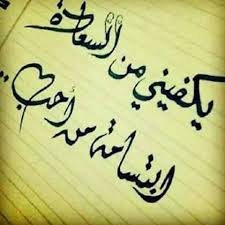 يكفيني من السعادة
ابتسامة من أحب ..